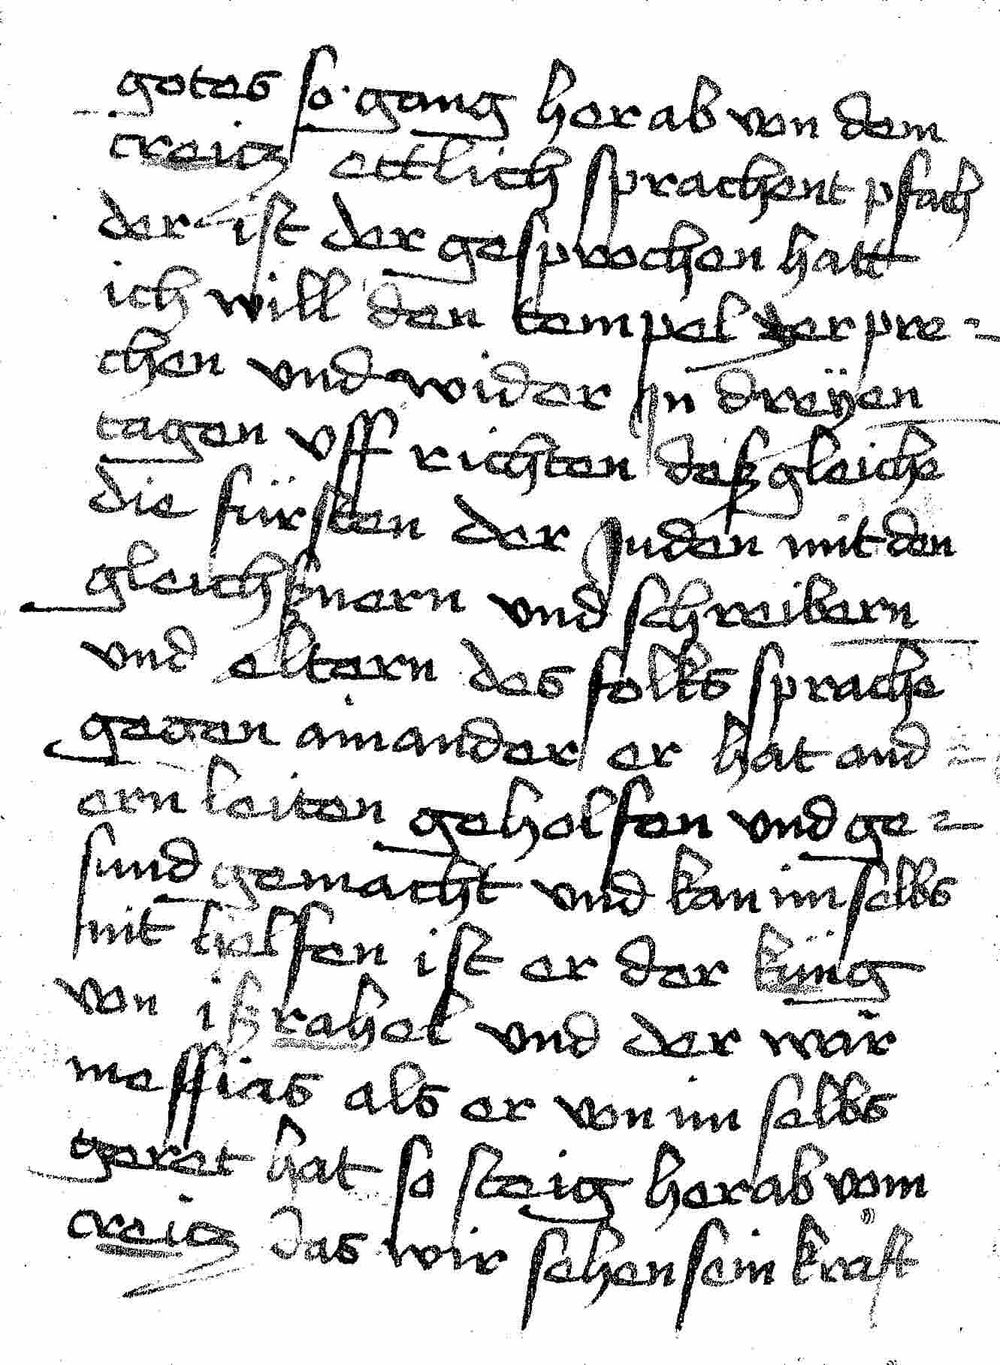 gotes so gang her ab von dem
creitz ettlich sprachent pfach
der ist der gesprochen hatt
ich will den tempel verpre=
chen vnd wider in dreÿen
tagen vff richten deßgleiche
die fürsten der Juden mit den
gleichßnern vnd schreibern
vnd eltern des folks sprache
gegen ainander er hat and=
ern leiten geholfen vnd ge=
sund gemacht vnd kan im selbs
nit helfen ist er der küng
von ißrahel vnd der war
messias als er von im selbs
geret hat so steig herab vom
creitz das wir sehen sein kraft